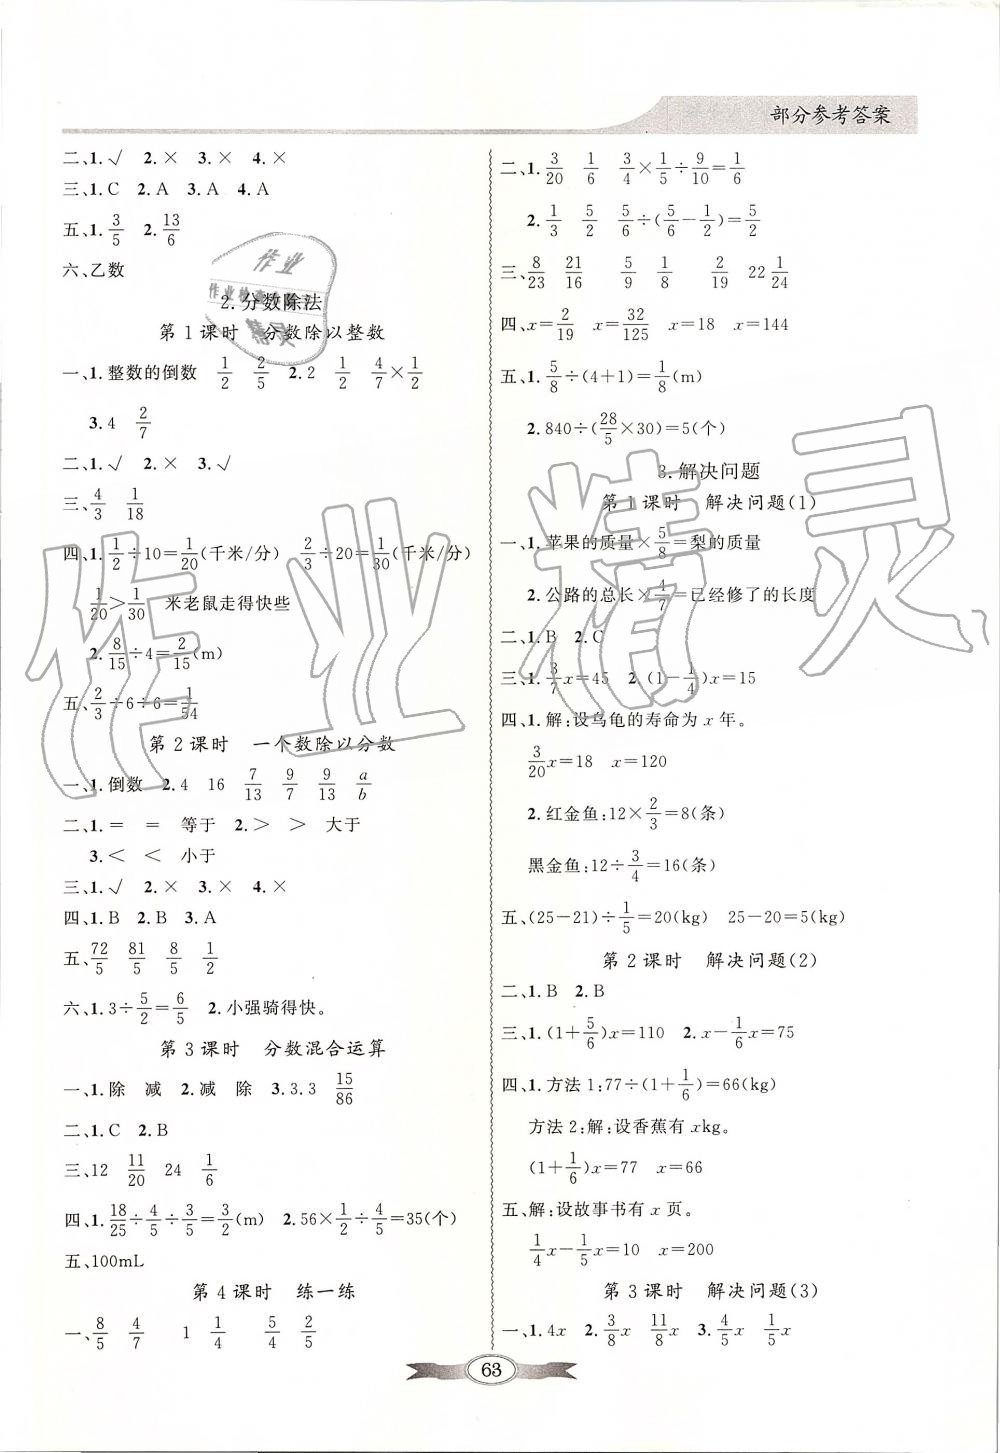 部分参考答案
二、1. √ 2. × 3. × 4. ×
三、1. C 2. A 3. A 4. A
五、1. 3/5 2. 13/6
六、乙数
2. 分数除法
第 1 课时 分数除以整数
一、1. 整数的倒数 1/2 2/5 2. 2 1/2 4/7×1/2
3. 4 2/7
二、1. √ 2. × 3. √
三、4/3 1/18
四、1. 1/2÷10=1/20(千米/分) 2/3÷20=1/30(千米/分)
1/20>1/30 米老鼠走得快些
2. 8/15÷4=2/15(m)
五、2/3÷6÷6=1/54
第 2 课时 一个数除以分数
一、1. 倒数 2. 4 16 7/13 9/7 9/13 a/b
二、1. = = 等于 2. > > 大于
3. < < 小于
三、1. √ 2. × 3. × 4. ×
四、1. B 2. B 3. A
五、72/5 81/5 8/5 1/2
六、1. 3÷5/2=6/5 2. 小强骑得快。
第 3 课时 分数混合运算
一、1. 除 减 2. 减 除 3. 3.3 15/86
二、1. C 2. B
三、12 11/20 24 1/6
四、1. 18/25÷4/5÷3/5=3/2(m) 2. 56×1/2÷4/5=35(个)
五、100mL
第 4 课时 练一练
一、8/5 4/7 1 1/4 5/4 2/5
二、1. 3/20 1/6 3/4×1/5÷9/10=1/6
2. 1/3 5/2 5/6÷(5/6-1/2)=5/2
三、8/23 21/16 5/9 1/8 2/19 22 1/24
四、x=2/19 x=32/125 x=18 x=144
五、1. 5/8÷(4+1)=1/8(m)
2. 840÷(28/5×30)=5(个)
3. 解决问题
第 1 课时 解决问题(1)
一、1. 苹果的质量×5/8=梨的质量
2. 公路的总长×4/7=已经修了的长度
二、1. B 2. C
三、1. 3/7x=45 2. (1-1/4)x=15
四、1. 解:设乌龟的寿命为 x 年。
3/20x=18 x=120
2. 红金鱼:12×2/3=8(条)
黑金鱼:12÷3/4=16(条)
五、(25-21)÷1/5=20(kg) 25-20=5(kg)
第 2 课时 解决问题(2)
二、1. B 2. B
三、1. (1+5/6)x=110 2. x-1/6x=75
四、1. 方法 1:77÷(1+1/6)=66(kg)
方法 2:解:设香蕉有 xkg。
(1+1/6)x=77 x=66
五、解:设故事书有 x 页。
1/4x-1/5x=10 x=200
第 3 课时 解决问题(3)
一、1. 4x 2. 3/8x 11/8x 3. 4/5x 1/5x
63
作业精灵